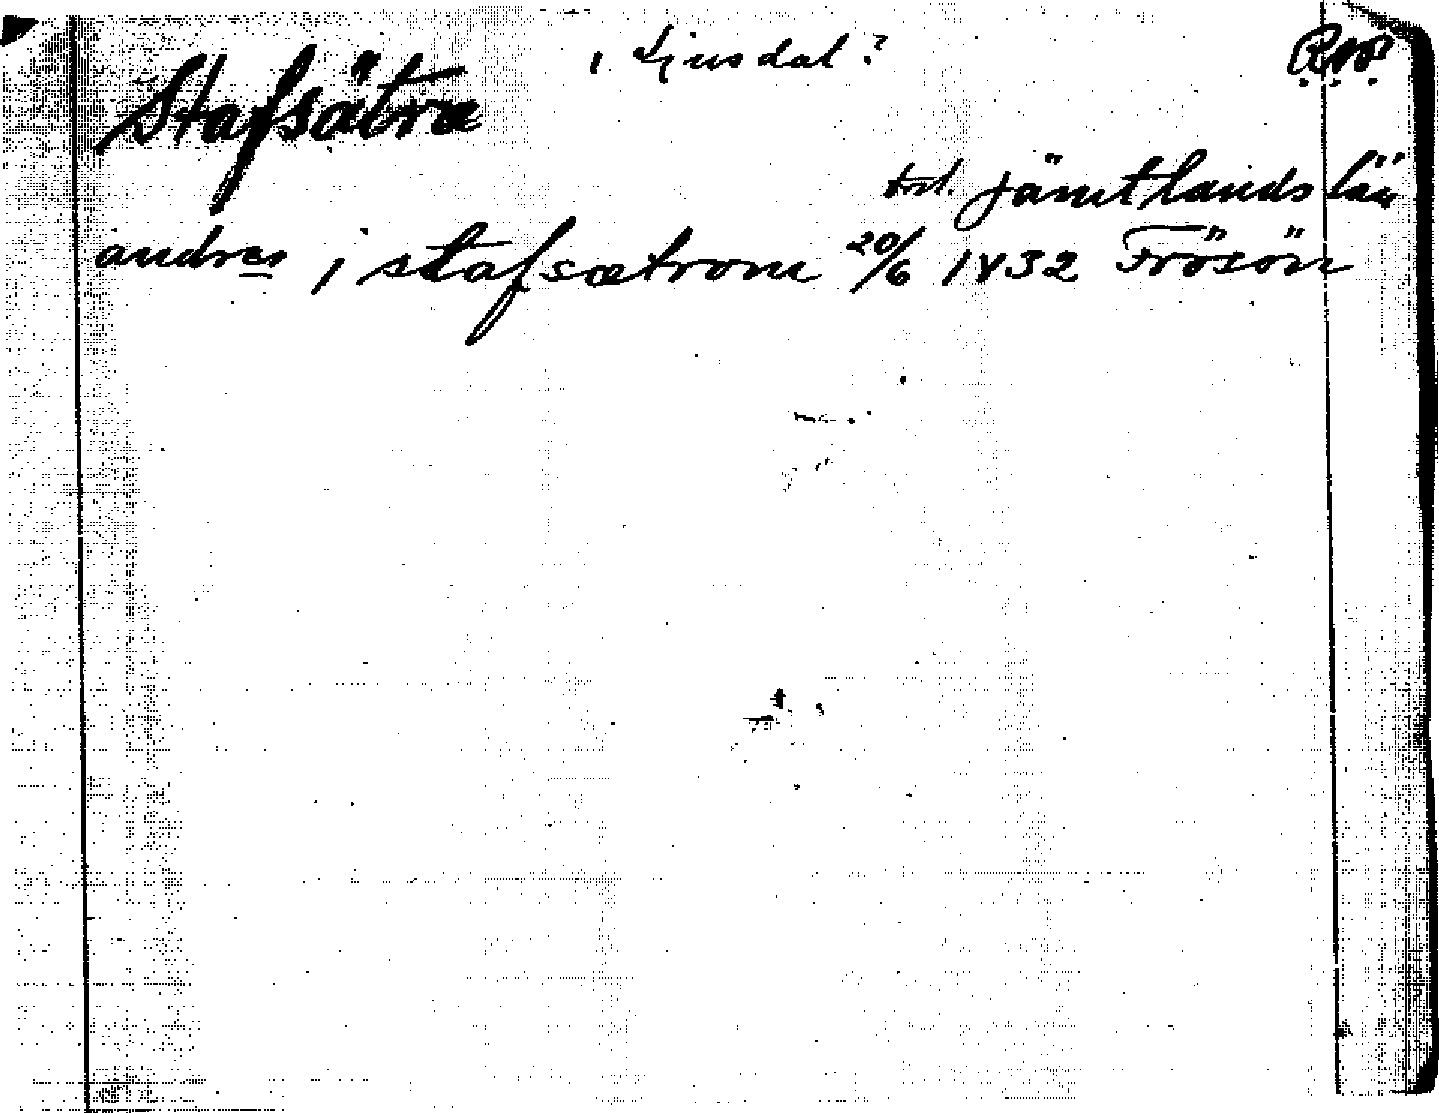 Stafsätra i Ljusdal?
Jämtlands län
andres i stafsætrom 20/6 1432 Frösön